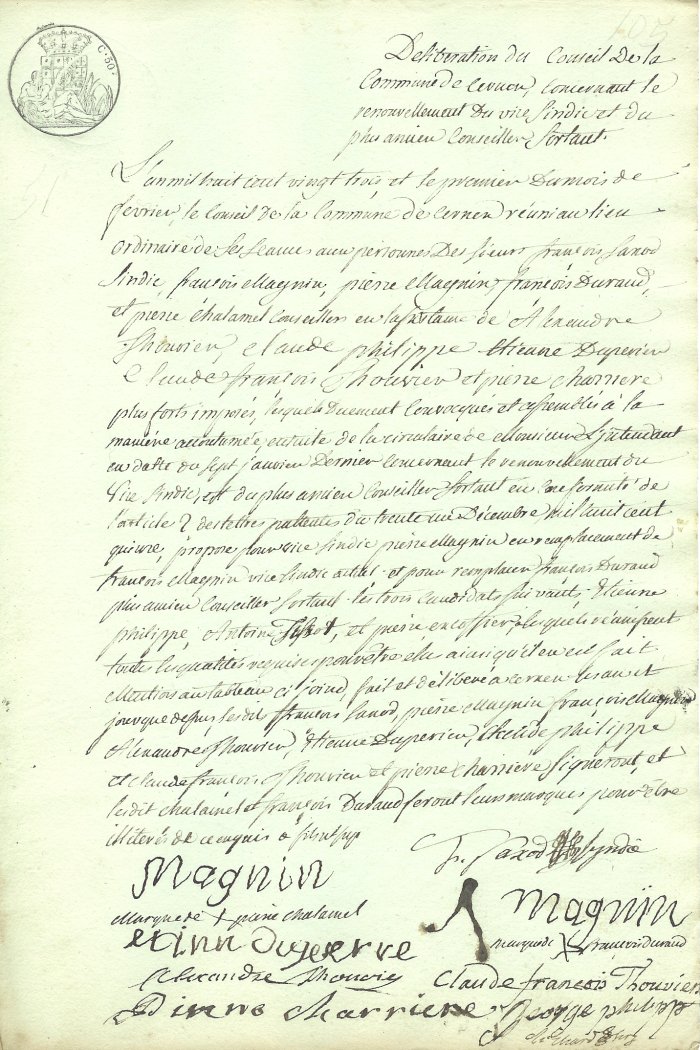 105
C. 50.
51
Deliberation du Conseil De la
Commune de Cernen, concernant le
renouvellement Des vice Sindic et du
plus ancien Conseiller Sortant.
L'an mil huit cent vingt trois et le premier Du mois de
fevrier, le Conseil de la Commune de Cernen réuni au lieu
ordinaire de ses séances aux personnes Des sieurs françois Saxod
Sindic, françois Magnin, pierre Magnin, françois Duraud,
et pierre Chalamel Conseillers en l'assistance de Alexandre
Thouvier, Claude philippe Etienne Duperier
Claude françois Thouvier et pierre Charriere
plus forts imposés, lesquels Duement Convocqués et assemblés à la
maniére accoutumée, ensuite de la circulaire de Monsieur L'jntendant
en datte du sept janvier Dernier concernant le renouvellement du
Vice Sindic, et du plus ancien Conseiller Sortant en conformité de
l'article 2 des lettres patentes du trente un Décembre, mil huit cent
quinze, propose pour vice Sindic pierre Magnin en remplacement de
françois Magnin vice Sindic actuel. et pour remplacer françois Duraud
plus ancien Conseiller Sortant les trois Candidats suivants, Etienne
philippe, Antoine et pierre lesquels réunissent
toutes les qualités requises pour être elu ainsi qu'il en est fait
au tableau ci joint, fait et délibéré à Cernen les an et
jour que dessus, lesdits françois Saxod, pierre Magnin françois Magnin
Alexandre Thouvier, Etienne Duperier, Claude philippe
et Claude françois Thouvier et pierre Charriére Signeront, et
lesdit Chalamel et françois Duraud feront leurs marques pour être
illiterés de ce enquis
fr. Saxod Syndic
Magnin
Marque de + pierre Chalamel
Magnin
etinn duperre
marque de + françois duraud
Alexandre Thouvier
Claude francois Thouvier
Pierre charriere
George philipp